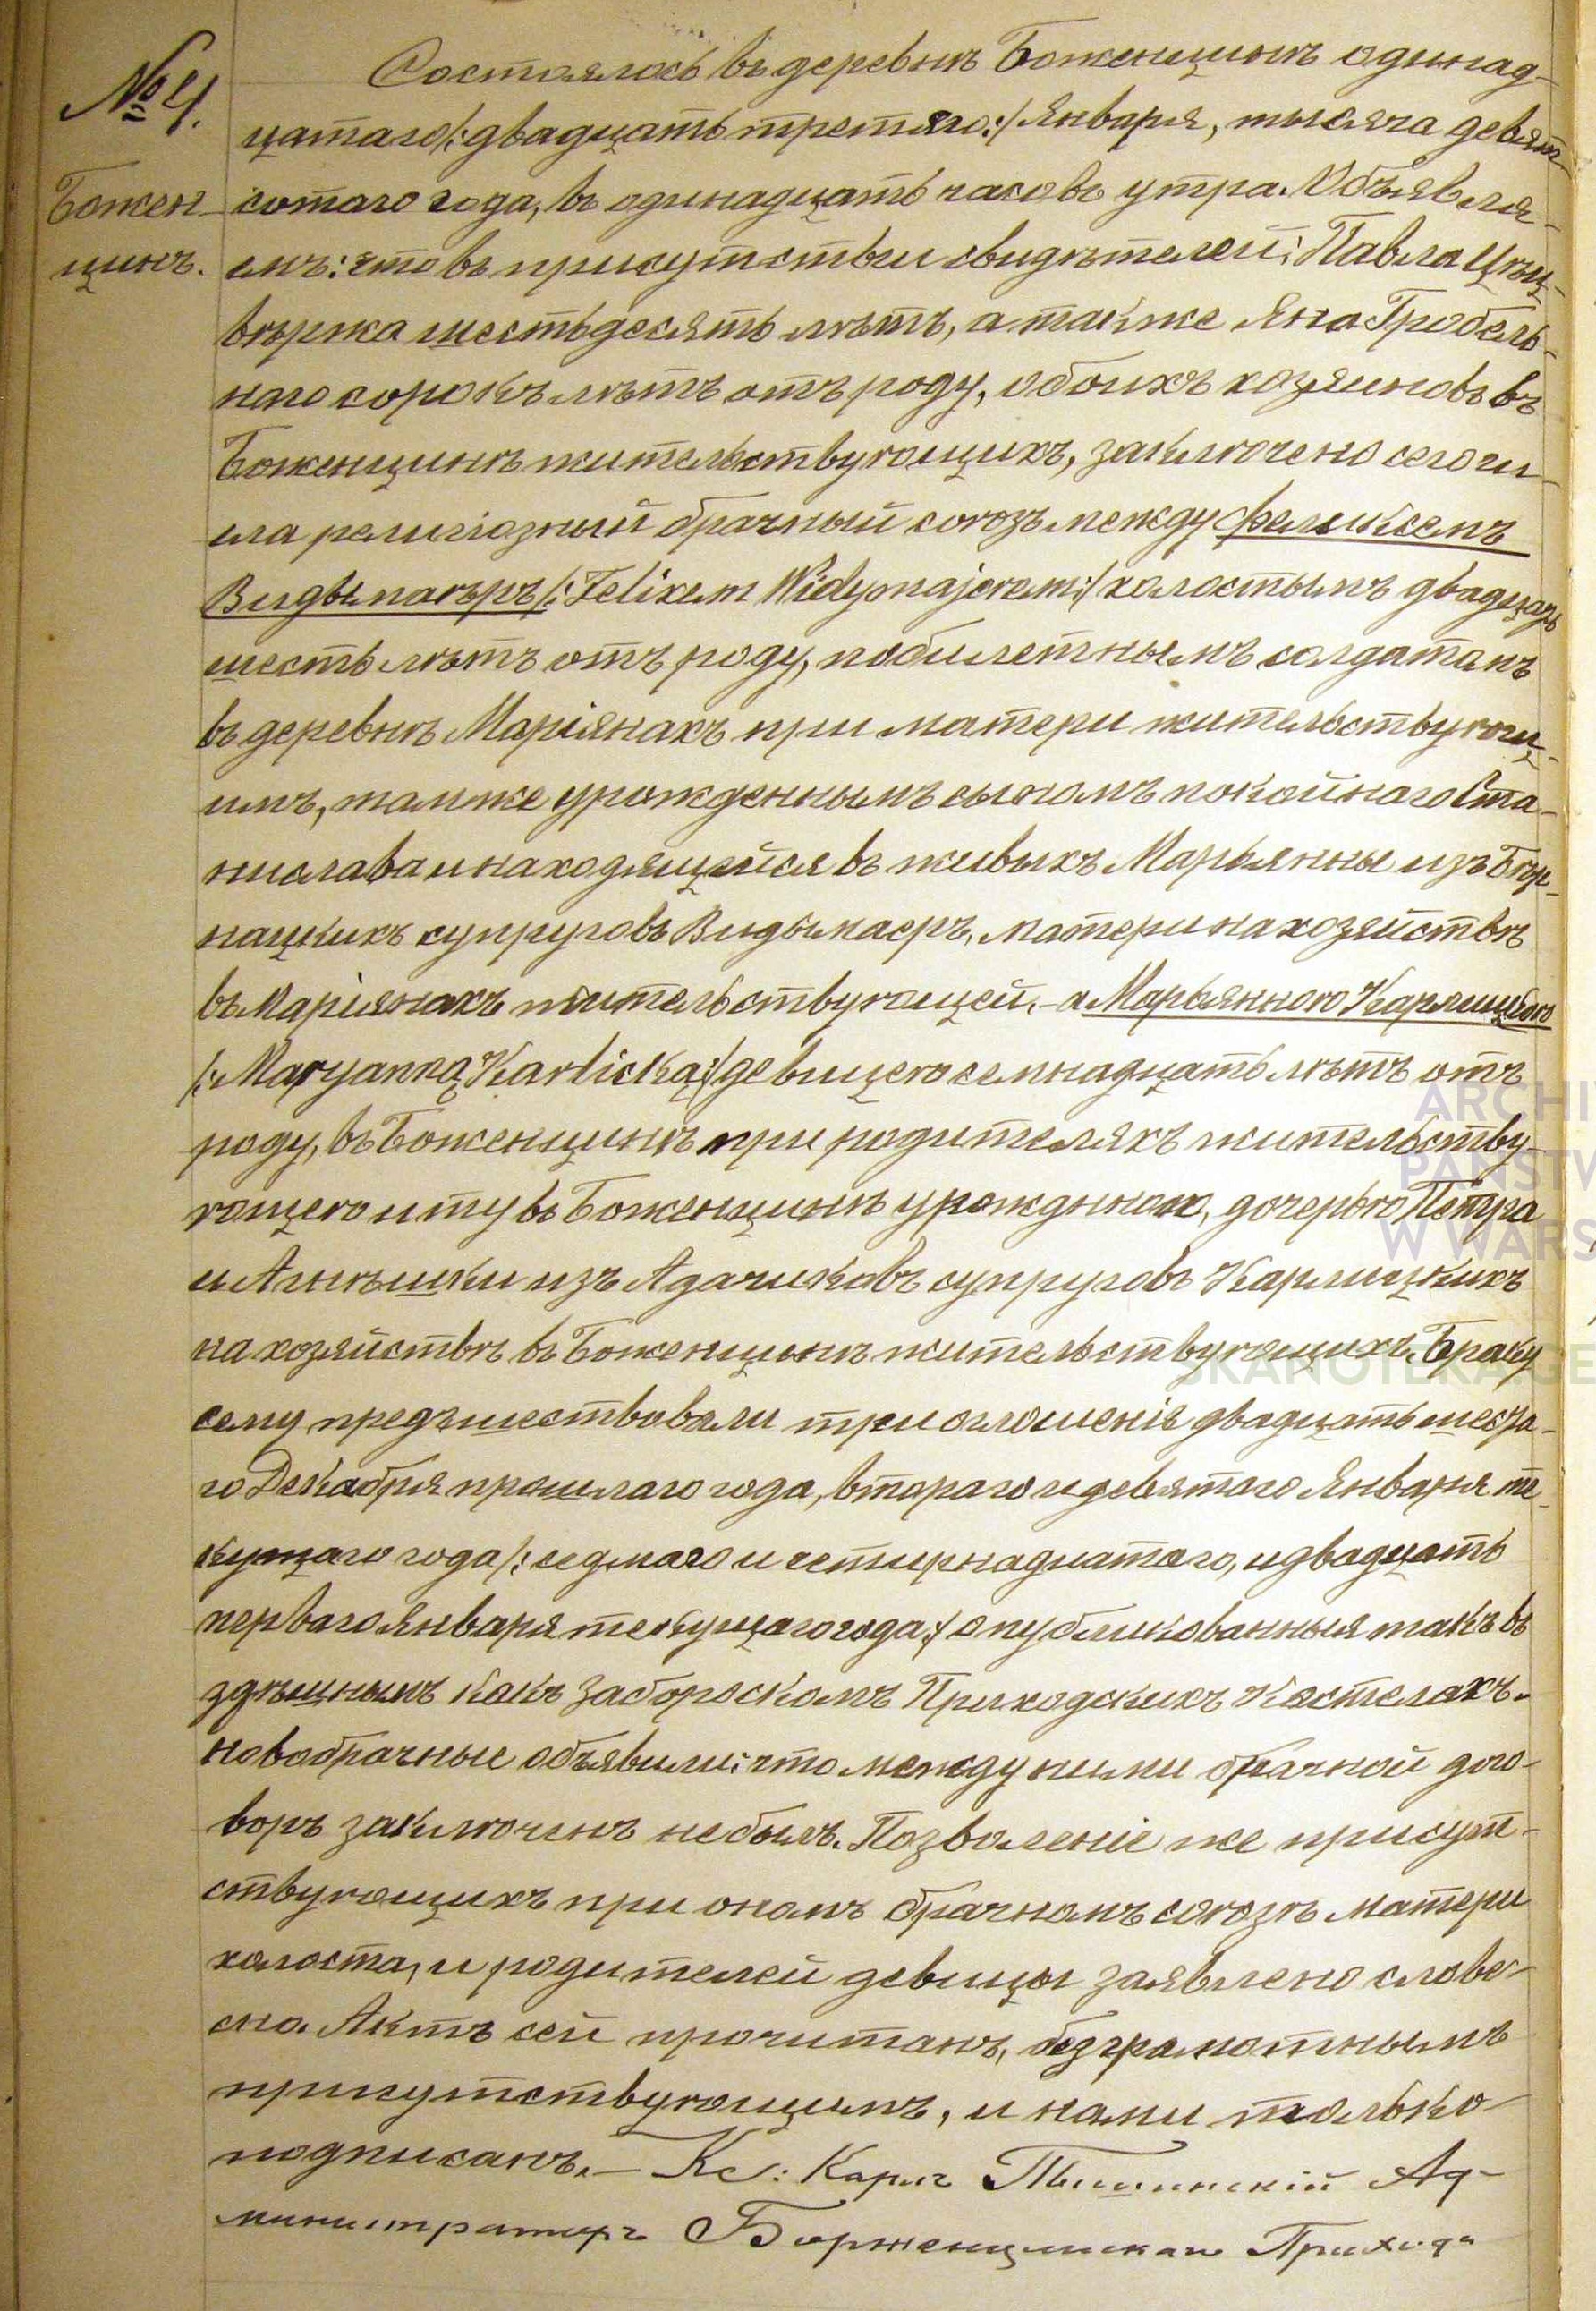 № 4.
Божен-
цинъ.
Состоялось въ деревнѣ Боженцинѣ одинад-
цатаго /:двадцать третяго:/ Января, тысяча девят-
сотаго года, въ одинадцать часовъ утра. Объявля-
емъ: что въ присутствіи свидѣтелей: Павла Цѣц-
вѣржа шестьдесять лѣтъ, а также Яна Гробель-
наго сорокъ лѣтъ отъ роду, обоихъ хозяиновъ въ
Боженцинѣ жительствующихъ, заключено сего чи-
сла религіозный брачный союзъ между Феликсемъ
Видымаеръ /:Felixem Widymajerem:/ холостымъ двадцать
шесть лѣтъ отъ роду, побилетнымъ солдатамъ
въ деревнѣ Маріянахъ при матери жительствующ-
имъ, тамже урожденнымъ сыномъ покойнаго Ста-
нислава и находящейся въ живыхъ Марьянны изъ
супруговъ Видымаеръ, матери на хозяйствѣ
въ Маріянахъ жительствующей, - а Марьянною Карлицкою
/:Maryanną Karlicką:/ девицею семнадцать лѣтъ отъ
роду, въ Боженцинѣ при родителяхъ жительству-
ющею и ту въ Боженцинѣ урожденною, дочерью Петра
и Агнѣшки изъ Адачиковъ супруговъ Карлицкихъ
на хозяйствѣ въ Боженцинѣ жительствующихъ. Браку
сему предшествовали три оглошенія двадцать шеста-
го Декабря прошлаго года, втораго и девятаго Января те-
кущаго года /:седмаго и четирнадцатаго, и двадцать
перваго Января текущаго года:/ опубликованныя такъ въ
здѣшнымъ какъ Заборoскомъ Приходскихъ Костелахъ.
Новобрачные объявили: что между ними брачной дого-
воръ заключенъ небылъ. Позволеніе же присут-
ствующихъ при ономъ брачномъ союзѣ матери
холоста, и родителей девицы заявлено слове-
сно. Актъ сей прочитанъ, безграмотнымъ
присутствующимъ, и нами только
подписанъ. — Кс: Карлъ Ад-
министраторъ Борженцинскаго Прихода
ARCHI
PAŃSTW
W WARS
SKANOTEKA GE